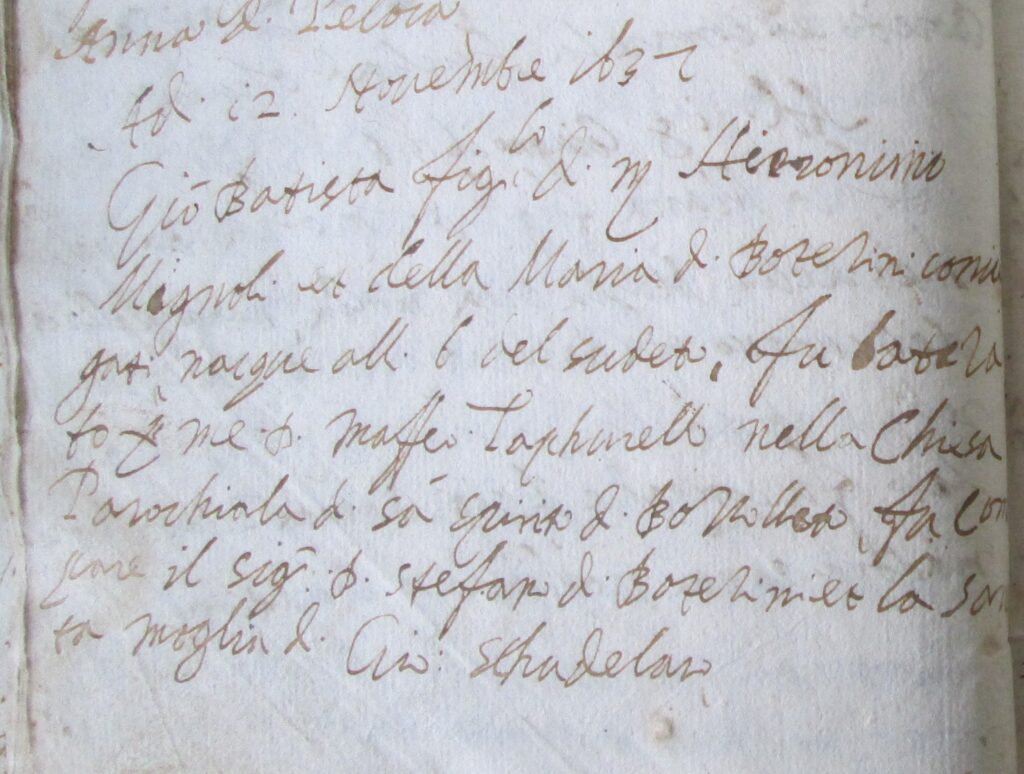 Anna d. Pelota
Ad. 12. Novembre 1637
Giō Batista fig.lo d. m Hieronimo
Mignoli et della Maria d. Botelini coniu
gati nacque all. 6 del sudeto, fu batiza
to me p. Maffeo Taphurello nella Chiesa
Parochiala d. sā spirito d. fu Com
pare il sig. p. stefano d. Botelini et la San
ta moglia d. Gio: schudelaro